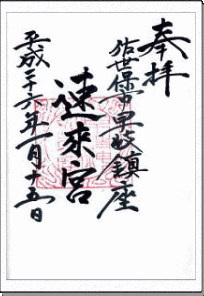 奉拝
佐世保市早岐鎮座
速來宮
平成二十六年一月十五日